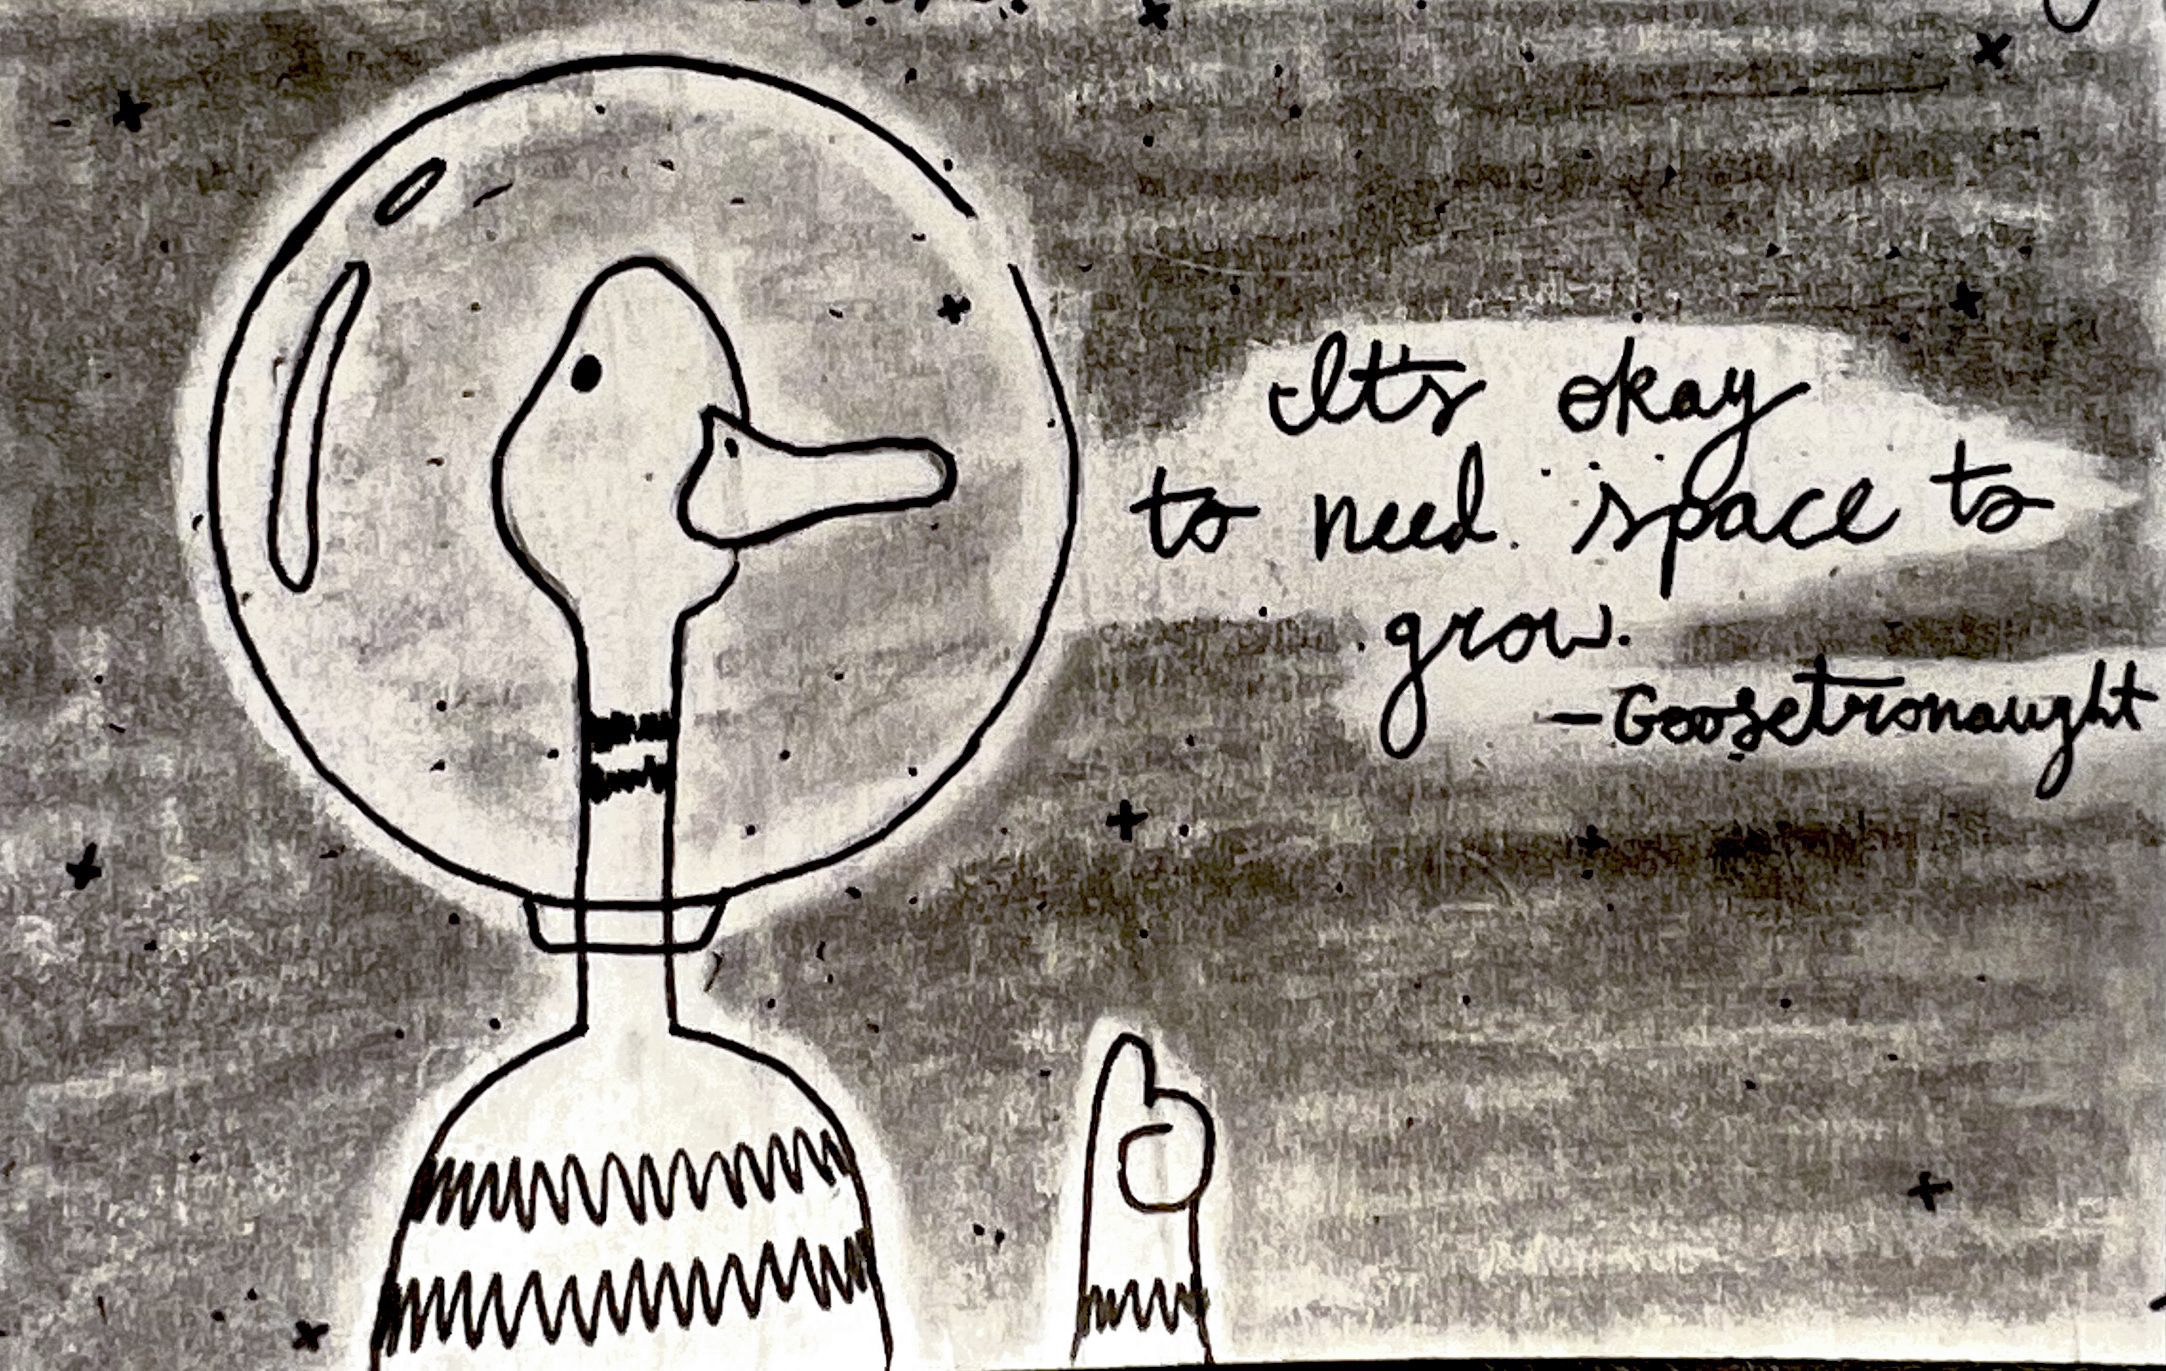 It's okay
to need space to
grow.
-Goosetronaught